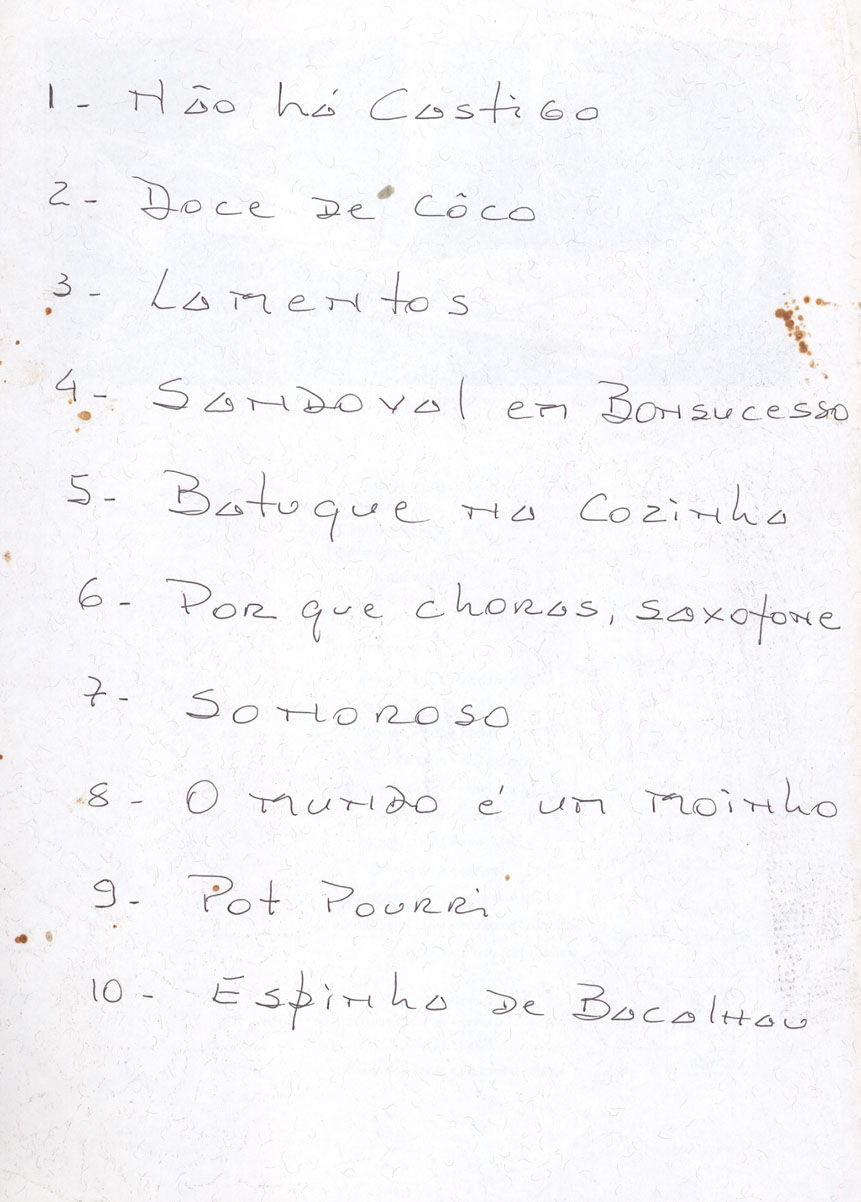 1 - Não há Castigo
2 - Doce de Côco
3 - Lamentos
4 - Sandoval em Bonsucesso
5 - Batuque na Cozinha
6 - Por que choras, saxofone
7 - Sonoroso
8 - O mundo é um moinho
9 - Pot Pourri
10 - Espinha de Bacalhau